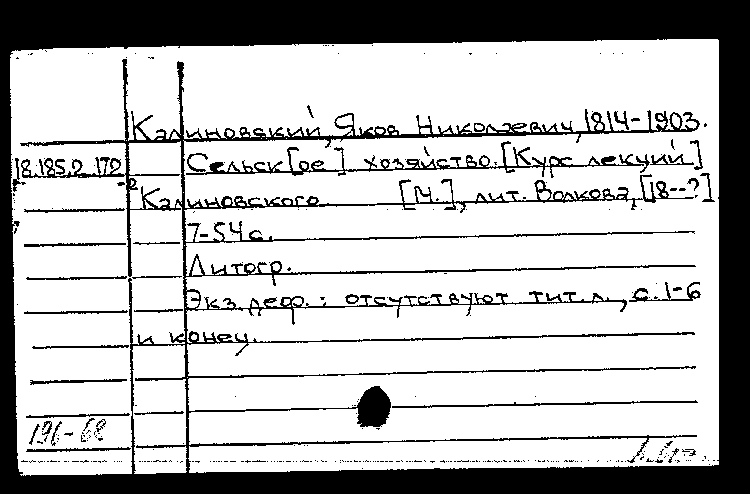 Калиновский, Яков Николаевич, 1814-1903.
18.185.2.172 Сельск[ое] хозяйство. [Курс лекций]
Калиновского [М.], лит. Волкова, [18--?]
7-54с.
Литогр.
Экз. деф.: отсутствуют тит. л., с. 1-6
и конец.
196-68